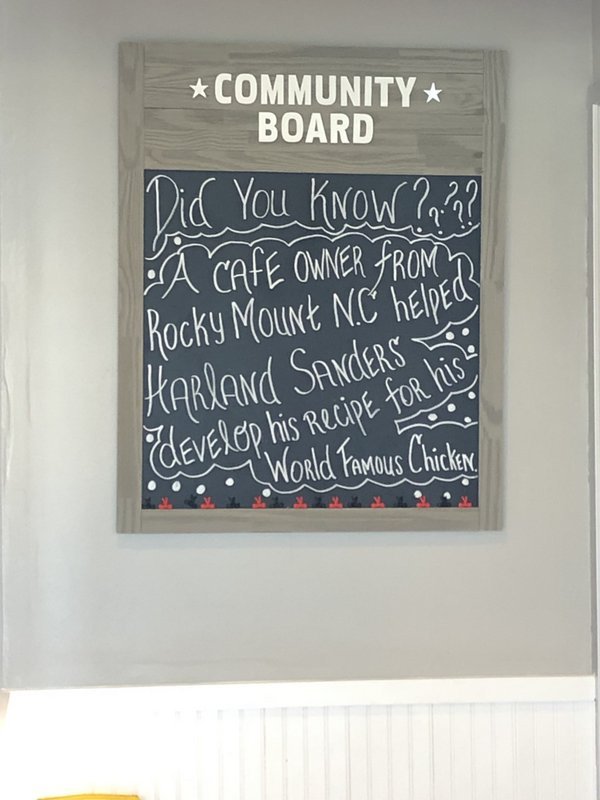 ★ COMMUNITY ★
BOARD
Did You Know ????
A CAFE OWNER FROM
Rocky Mount N.C helped
Harland Sanders
develop his recipe for his
World Famous Chicken.